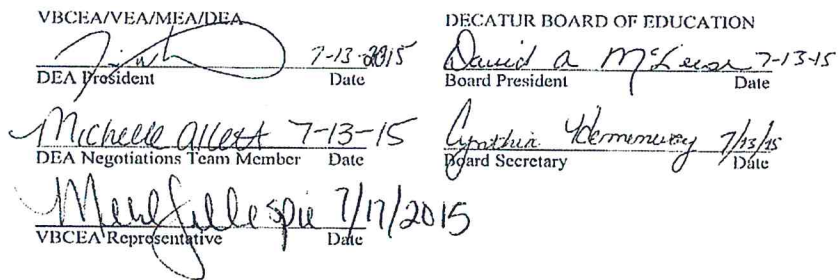 VBCEA/VEA/MEA/DEA
7-13-2015
DEA President Date
Michelle Allett 7-13-15
DEA Negotiations Team Member Date
Gillespie 7/17/2015
VBCEA Representative Date
DECATUR BOARD OF EDUCATION
David A McLeese 7-13-15
Board President Date
Cynthia Hemenway 7/13/15
Board Secretary Date